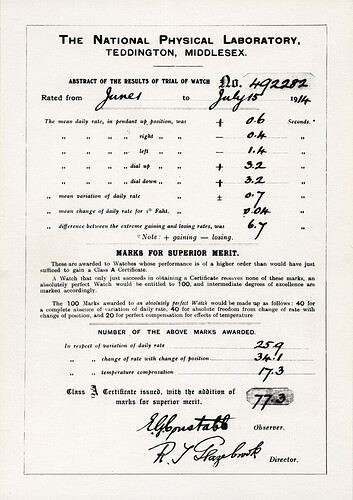 THE NATIONAL PHYSICAL LABORATORY,
TEDDINGTON, MIDDLESEX.
ABSTRACT OF THE RESULTS OF TRIAL OF WATCH No. 492282
Rated from June 1 to July 15 1914
The mean daily rate, in pendant up, position, was + 0.6 Seconds.*
„ „ „ „ right „ - 0.4 „
„ „ „ „ left „ - 1.4 „
„ „ „ „ dial up „ + 3.2 „
„ „ „ „ dial down „ + 3.2 „
„ mean variation of daily rate „ ± 0.7 „
„ mean change of daily rate for 1° Faht. „ 0.04 „
„ difference between the extreme gaining and losing rates, was 6.7 „
* Note: + gaining — losing.
MARKS FOR SUPERIOR MERIT.
These are awarded to Watches whose performance is of a higher order than would have just
sufficed to gain a Class A Certificate.
A Watch that only just succeeds in obtaining a Certificate receives none of these marks, an
absolutely perfect Watch would be entitled to 100, and intermediate degrees of excellence are
marked accordingly.
The 100 Marks awarded to an absolutely perfect Watch would be made up as follows: 40 for
a complete absence of variation of daily rate, 40 for absolute freedom from change of rate with
change of position, and 20 for perfect compensation for effects of temperature
NUMBER OF THE ABOVE MARKS AWARDED.
In respect of variation of daily rate 25.9
„ „ change of rate with change of position 34.1
„ „ temperature compensation 17.3
Class A Certificate issued, with the addition of
marks for superior merit. 77.3
E.G. Constable Observer.
R. T. Glazebrook Director.